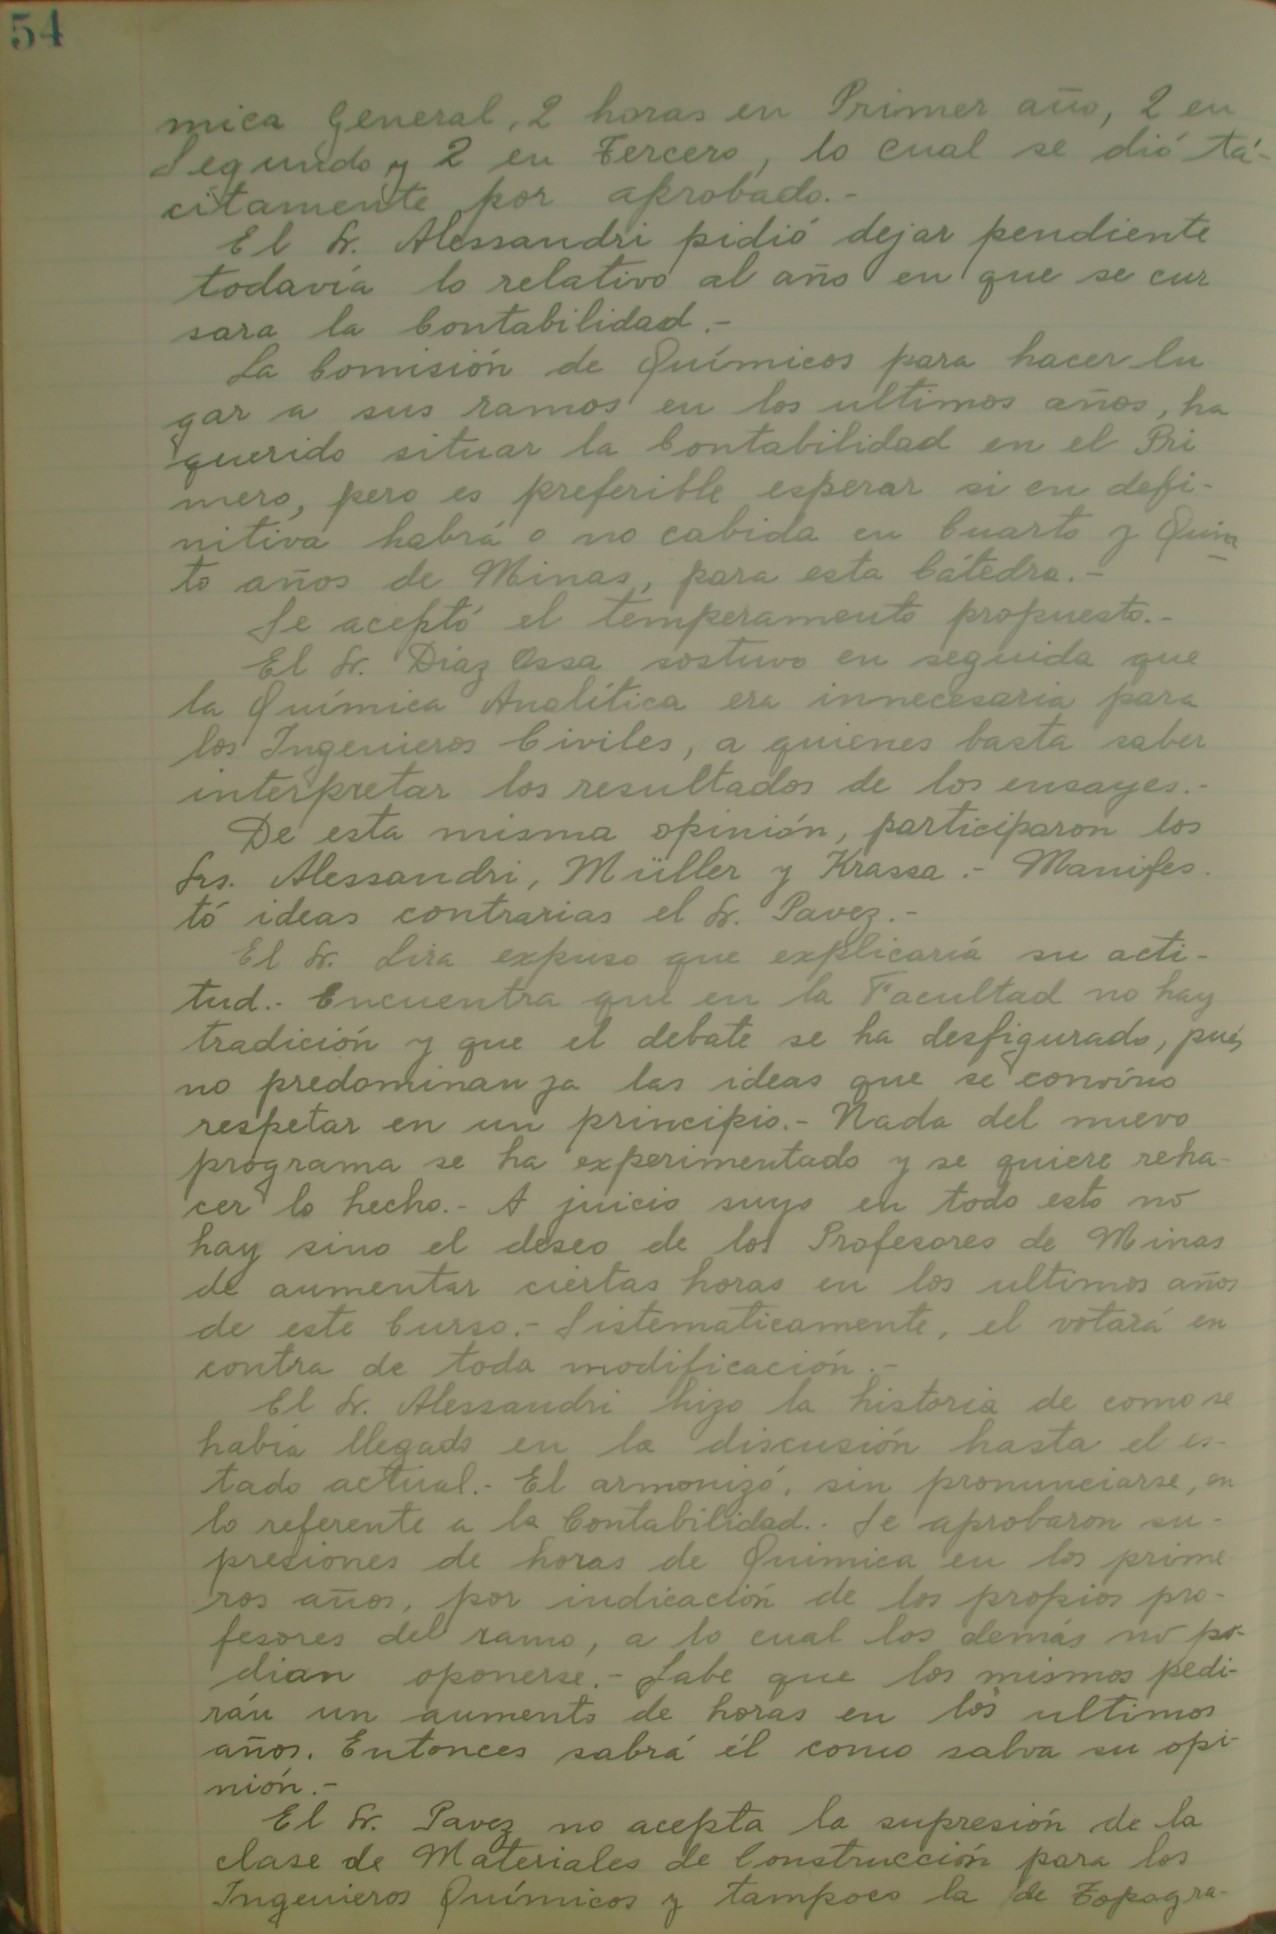 54
mica General, 2 horas en Primer año, 2 en
Segundo y 2 en Tercero, lo cual se dió tá-
citamente por aprobado.-
El Sr. Alessandri pidió dejar pendiente
todavía lo relativo al año en que se cur
sara la Contabilidad.-
La Comisión de Químicos para hacer lu
gar a sus ramos en los ultimos años, ha
querido situar la Contabilidad en el Pri
mero, pero es preferible esperar si en defi-
nitiva habrá o no cabida en Cuarto y Quin
to años de Minas, para esta Cátedra.-
Se aceptó el temperamento propuesto.-
El Sr. Díaz Ossa sostuvo en seguida que
la Química Analítica era innecesaria para
los Ingenieros Civiles, a quienes basta saber
interpretar los resultados de los ensayes.-
De esta misma opinión, participaron los
Srs. Alessandri, Müller y Krassa.- Manifes.
tó ideas contrarias el Sr. Pavez.-
El Sr. Lira expuso que explicaría su acti-
tud.- Encuentra que en la Facultad no hay
tradición y que el debate se ha desfigurado, pués
no predominan ya las ideas que se convino
respetar en un principio.- Nada del nuevo
programa se ha experimentado y se quiere reha-
cer lo hecho.- A juicio suyo en todo esto no
hay sino el deseo de los Profesores de Minas
de aumentar ciertas horas en los ultimos años
de este Curso.- Sistematicamente, el votará en
contra de toda modificación.-
El Sr. Alessandri hizo la historia de como se
había llegado en la discusión hasta el es-
tado actual.- El armonizó, sin pronunciarse, en
lo referente a la Contabilidad.- Se aprobaron su-
presiones de horas de Quimica en los prime
ros años, por indicación de los propios pro-
fesores del ramo, a lo cual los demás no po-
dian oponerse.- Sabe que los mismos pedi-
rán un aumento de horas en los ultimos
años. Entonces sabrá él como salva su opi-
nión.-
El Sr. Pavez no acepta la supresión de la
clase de Materiales de Construcción para los
Ingenieros Químicos y tampoco la de Topogra-